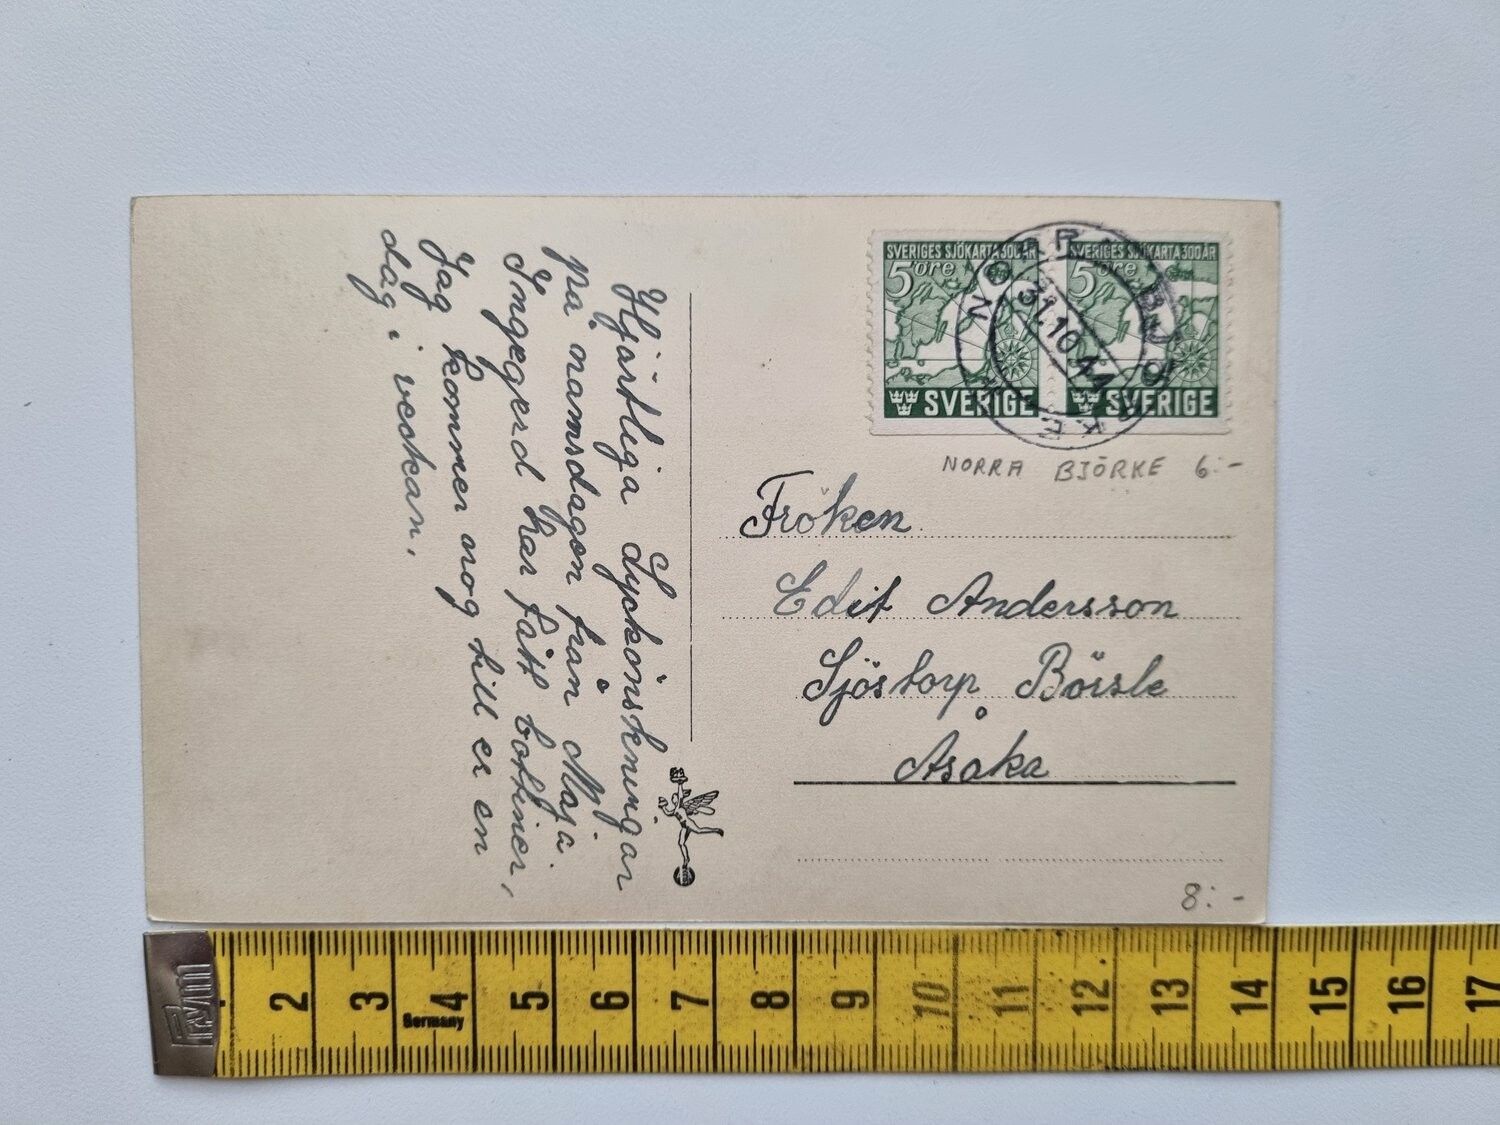 Hjärtliga Lyckönskningar
på namsdagen från Maja.
Ingegerd har fått bottiner,
Jag kommer nog till er en
dag i veckan.
SVERIGES SJÖKARTA 300 ÅR
5 öre
SVERIGE
SVERIGES SJÖKARTA 300 ÅR
5 öre
SVERIGE
NORRA BJÖRKE
31.10.44
NORRA BJÖRKE 6:-
Fröken
Edit Andersson
Sjöstorp Börsle
Åsaka
8:-
Prym
Germany
2 3 4 5 6 7 8 9 10 11 12 13 14 15 16 17